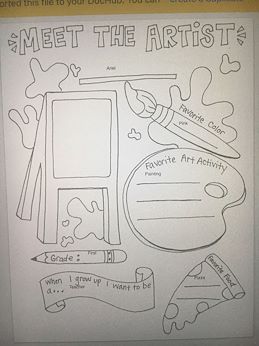 orted this file to your DocHub. You can
MEET THE ARTIST
Ariel
Favorite Color
Pink
Favorite Art Activity
Painting
Grade:
First
When I grow up I want to be
a...
Teacher
Favorite Food
Pizza